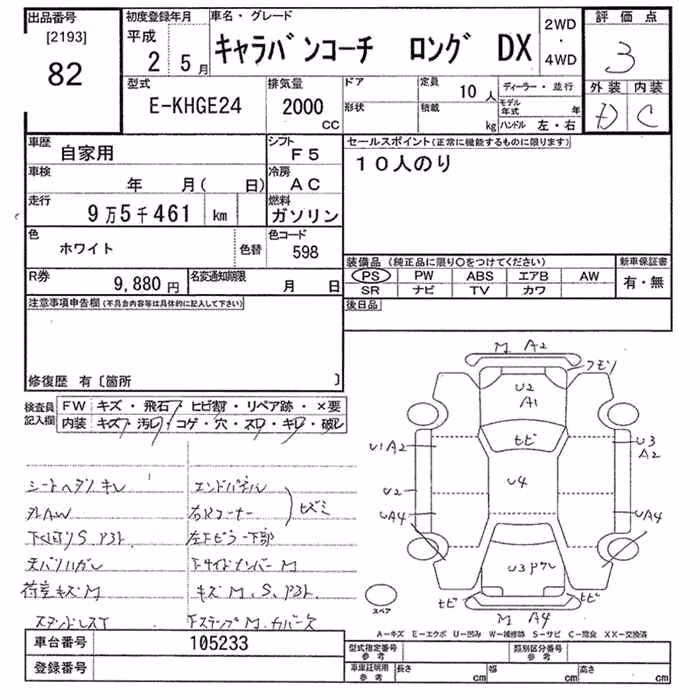 出品番号
[2193]
82
初度登録年月
平成
2 5月
車名・グレード
キャラバンコーチ ロング DX
2WD
・
4WD
評価点
3
外装 内装
D C
型式
E-KHGE24
排気量
2000
CC
ドア
形状
定員
10人
積載
kg
ディーラー・並行
モデル年式 年
ハンドル 左・右
車歴
自家用
シフト
F5
車検
年 月( 日)
冷房
AC
走行
9万5千461 km
燃料
ガソリン
色
ホワイト
色替
色コード
598
R券
9,880円
名変通知期限
月 日
注意事項申告欄(不具合内容等は具体的に記入して下さい)
修復歴 有〔箇所 〕
セールスポイント(正常に機能するものに限ります)
10人のり
装備品(純正品に限り○をつけてください)
PS PW ABS エアB AW
SR ナビ TV カワ
新車保証書
有・無
後日品
検査員
記入欄
FW キズ・飛石・ヒビ割・リペア跡・×要
内装 キズ・汚レ・コゲ・穴・スレ・キレ・破レ
シートヘタリ キレ
エンドパネル
外AW
右Rコーナー
ヒズミ
下くぼりS
左下ピラー下部
天バリハガレ
下サイドメンバーM
荷室キズM
キズM、S、
M A2
フモリ
U2
A1
ヒビ
U1A2
U3
A2
U4
U2
UA4
UA4
U3
ヒビ
ヒビ
M A4
スペア
A−キズ E−エクボ U−凹み W−補修跡 S−サビ C−腐食 XX−交換済
車台番号
105233
登録番号
型式指定番号
参考
類別区分番号
参考
車庫証明用
参考
長さ cm
幅 cm
高さ cm